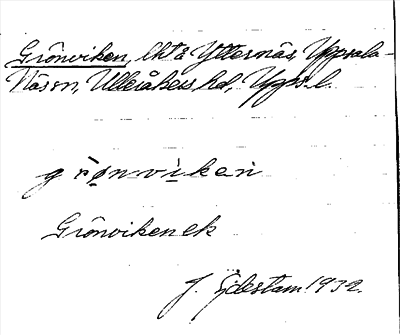 Grönviken, lht å Ytternäs, Uppsala-
Näs sn, Ulleråkers hd, Upps. l.
grönviken
Grönviken ek
J. Sjdestam 1932.